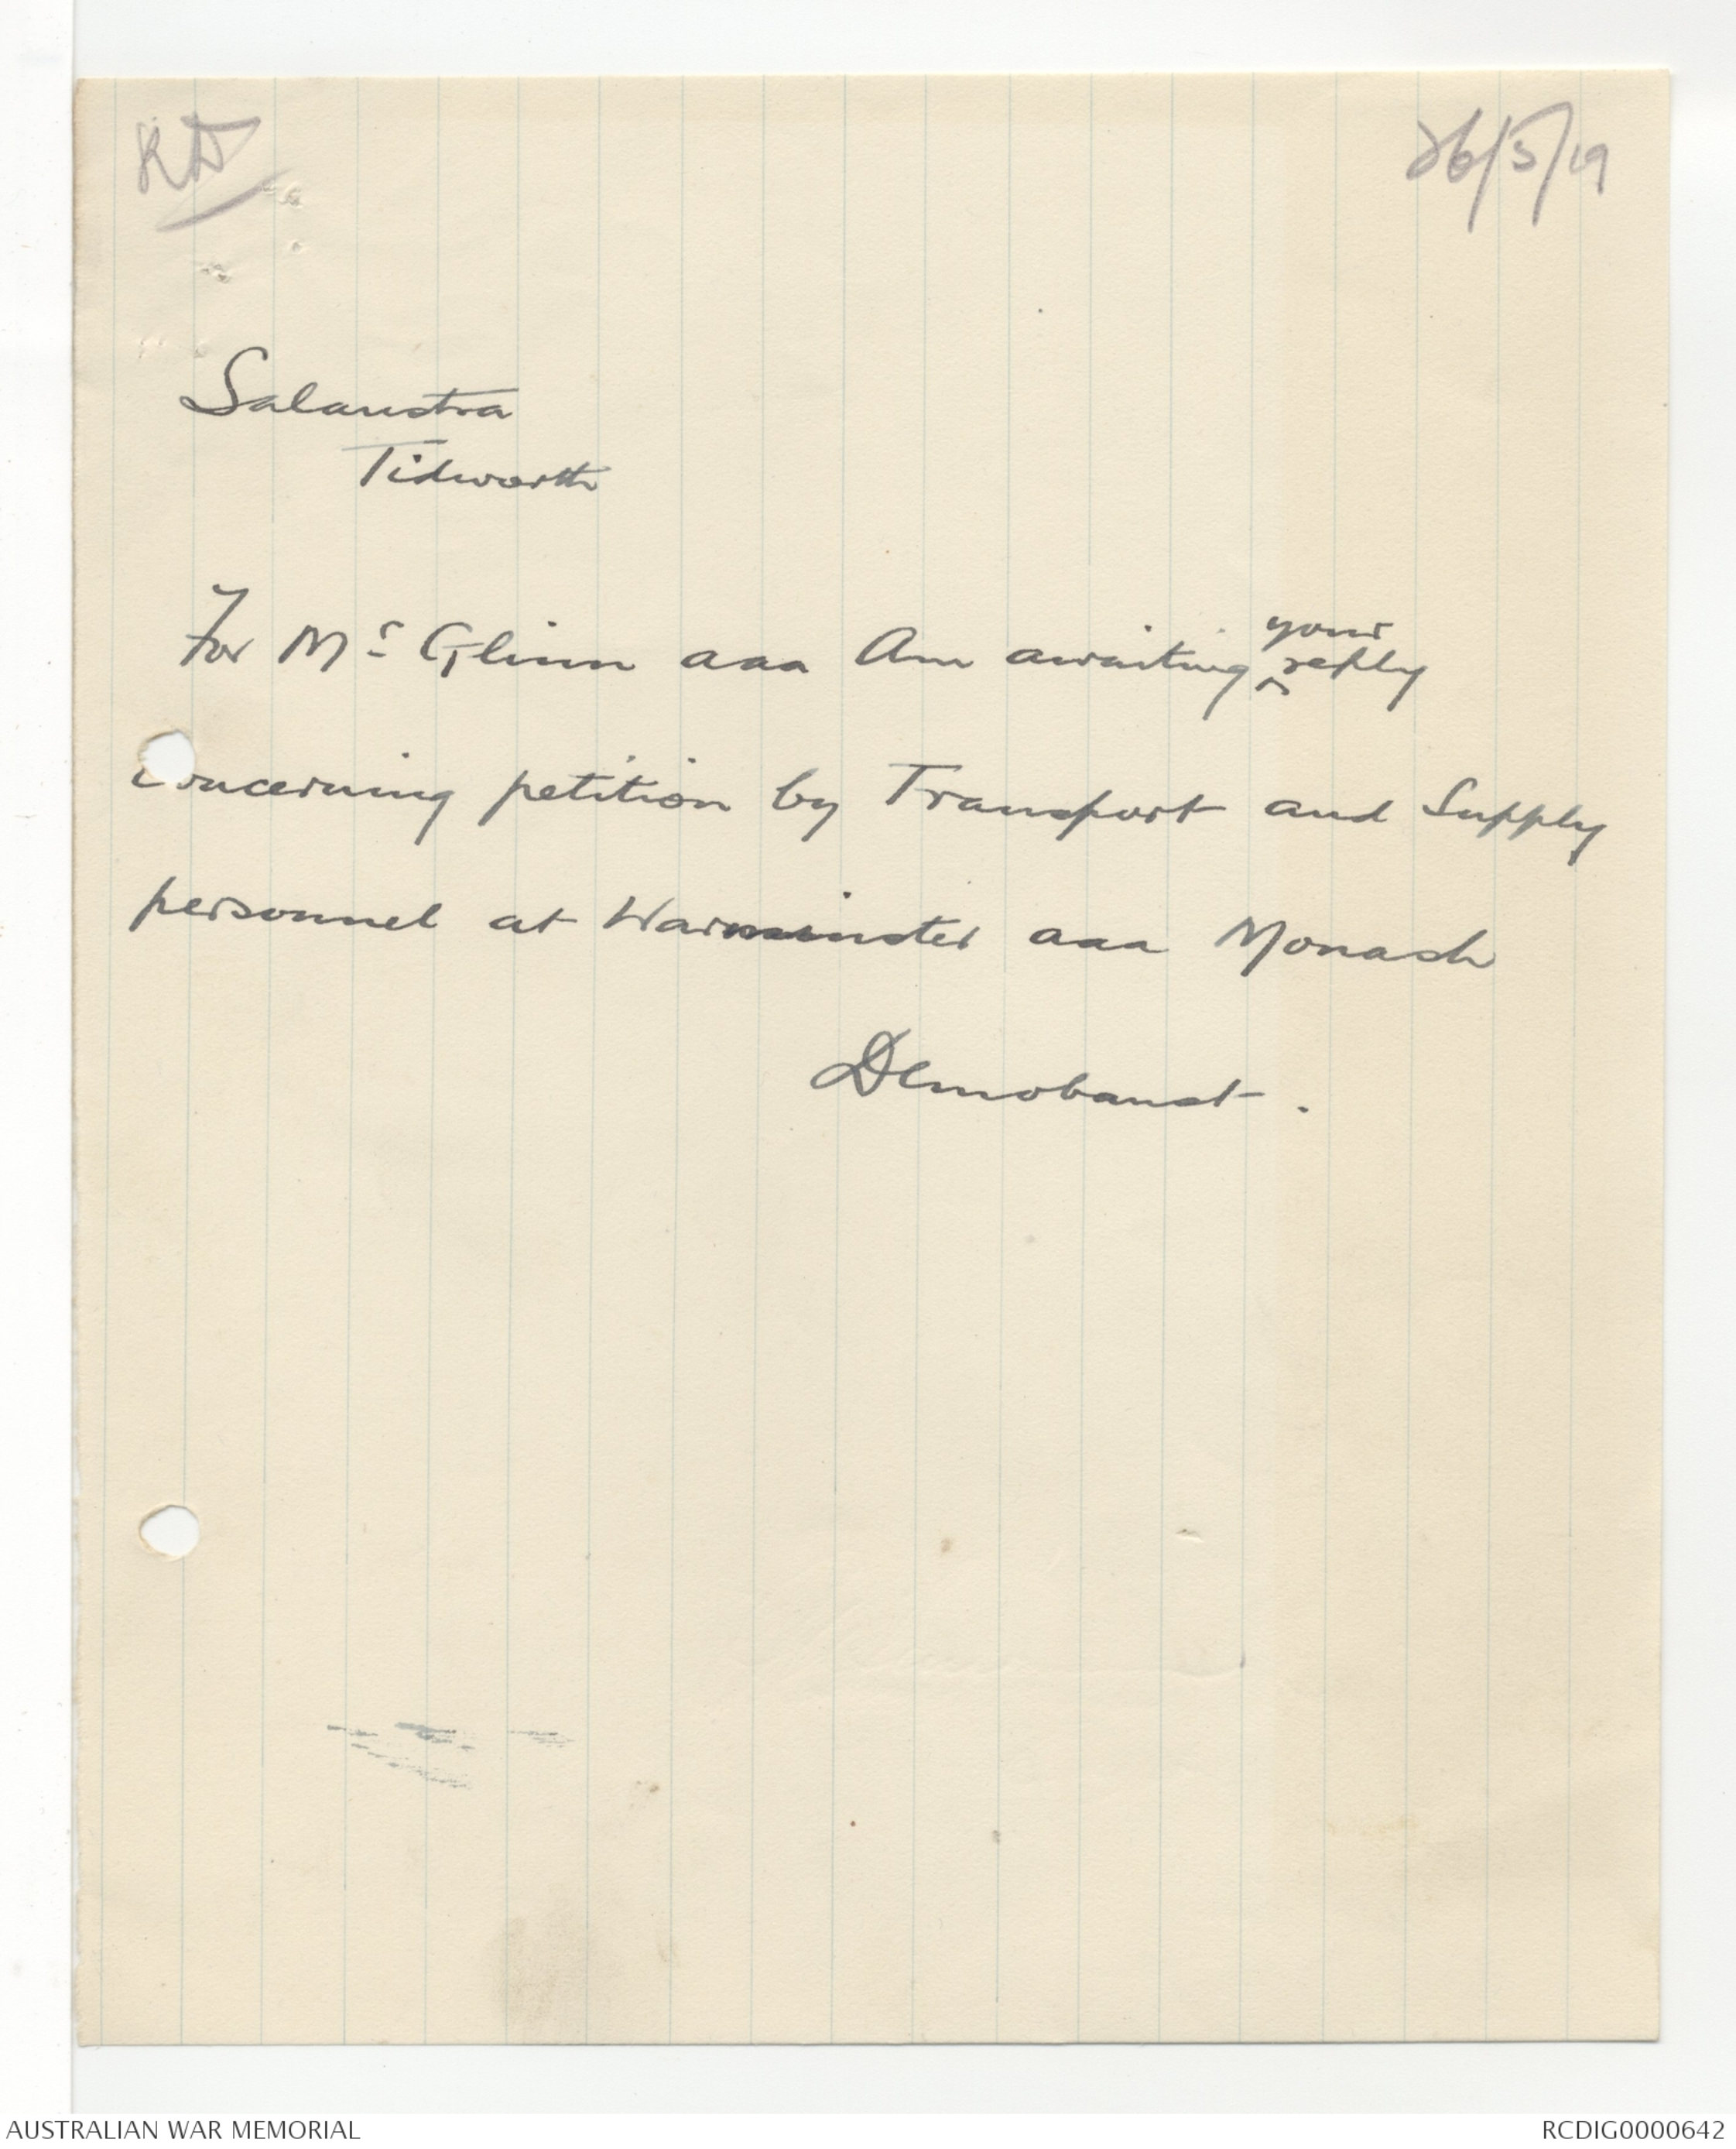 RD
26/5/19
Salaustra
Tidworth
For Mc Glinn aaa Am awaiting your reply
concerning petition by Transport and Supply
personnel at Warminster aaa Monash
Demobaust.
AUSTRALIAN WAR MEMORIAL
RCDIG0000642